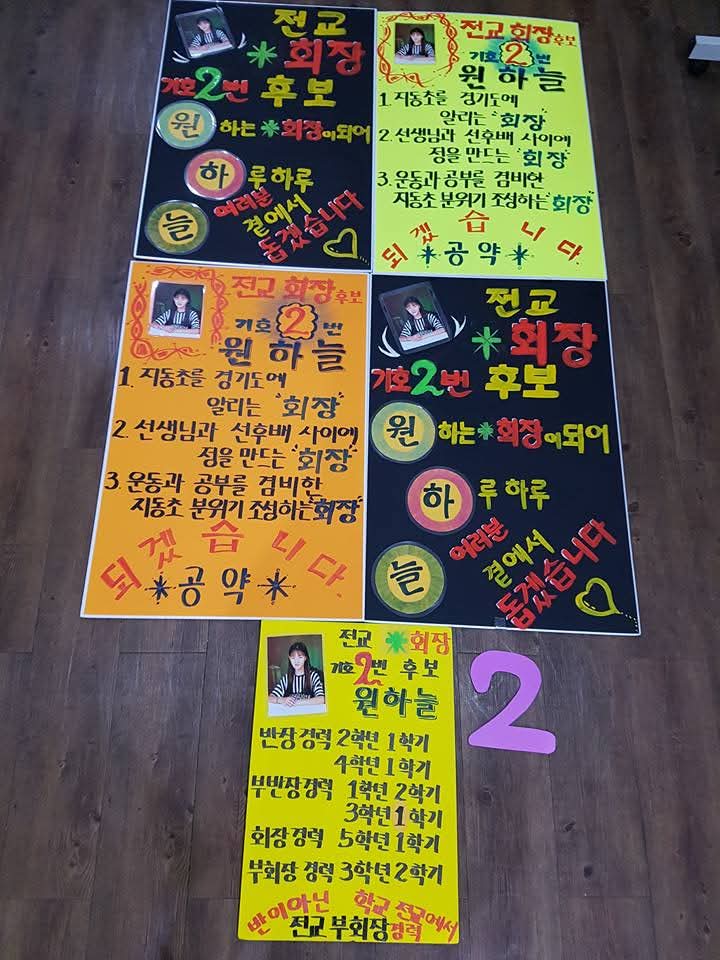 전교
*회장
기호2번 후보
원 하는 *회장이되어
하 루하루
늘 여러분
곁에서
돕겠습니다
전교 회장후보
기호 2 번
원 하 늘
1. 지동초를 경기도에
알리는 "회장"
2. 선생님과 선후배 사이에
정을 만드는 "회장"
3. 운동과 공부를 겸비한
지동초 분위기 조성하는 "회장"
되겠습니다.
*공약*
전교 회장후보
기호 2 번
원 하 늘
1. 지동초를 경기도에
알리는 "회장"
2. 선생님과 선후배 사이에
정을 만드는 "회장"
3. 운동과 공부를 겸비한
지동초 분위기 조성하는 "회장"
되겠습니다.
*공약*
전교
*회장
기호2번 후보
원 하는*회장이되어
하 루하루
늘 여러분
곁에서
돕겠습니다
전교 *회장
기호2번 후보
원하늘
반장경력 2학년 1학기
4학년 1학기
부반장경력 1학년 2학기
3학년 1학기
회장경력 5학년 1학기
부회장 경력 3학년 2학기
반이아닌 학교 전교에서
전교 부회장경력
2